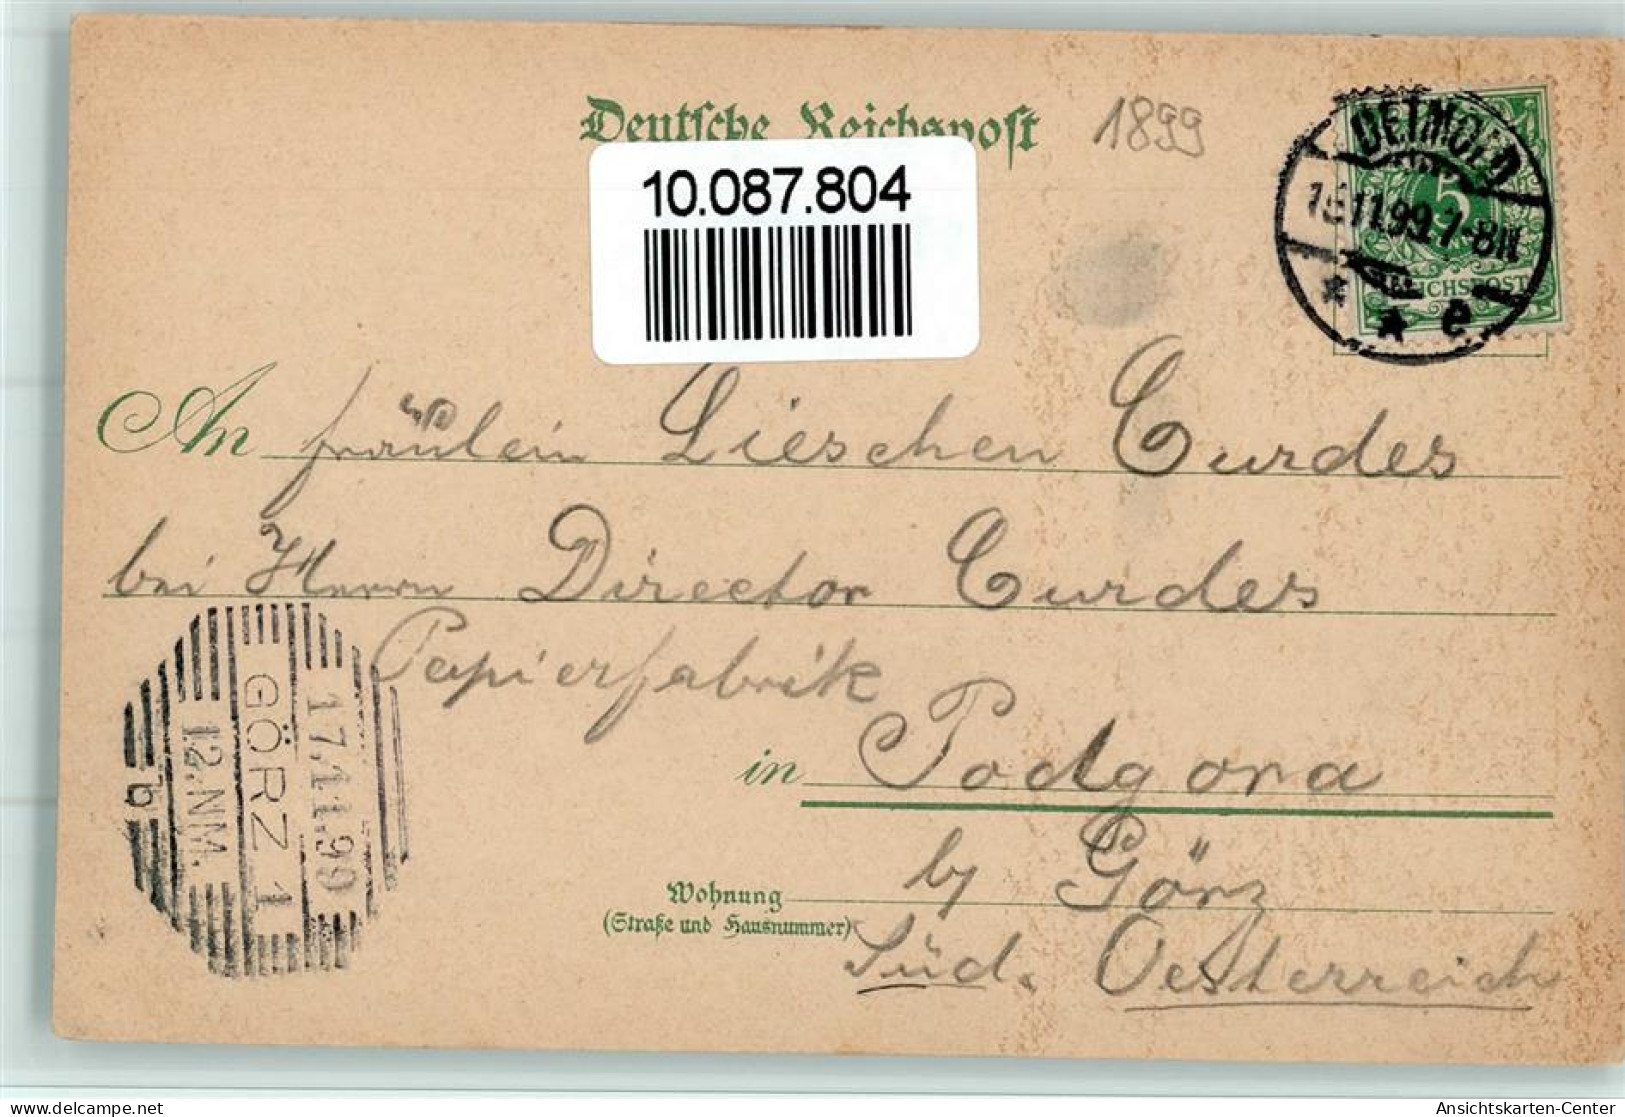 Deutsche Reichspost
1899
10.087.804
DETMOLD
11.99.7-8N
5
REICHSPOST
e
An fräulein Lieschen Curdes
bei Herrn Director Curdes
Papierfabrik
in Podgora
by Görz
Wohnung
(Straße und Hausnummer)
Süd. Oesterreich
17.11.99
GÖRZ 1
12.NM.
b
Ansichtskarten-Center
delcampe.net